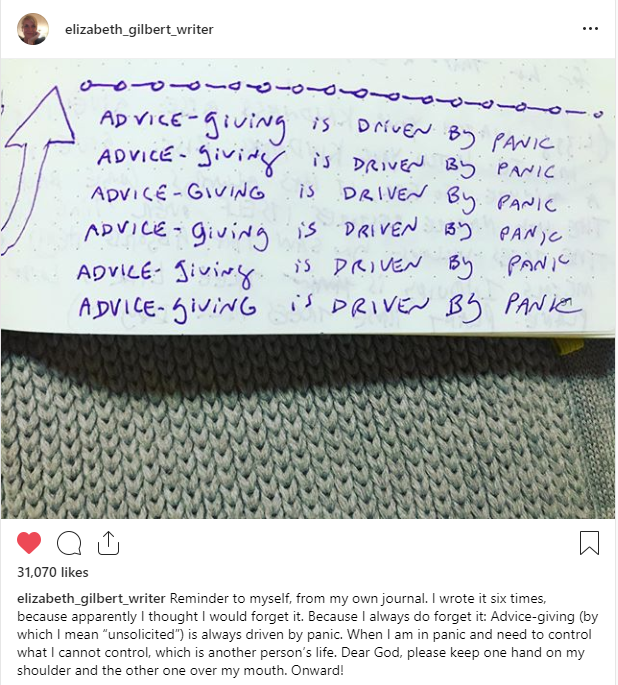 elizabeth_gilbert_writer
ADVICE-giving is DRIVEN By PANIC
ADVICE-giving is DRIVEN By PANIC
ADVICE-GIVING is DRIVEN By PANIC
ADVICE-giving is DRIVEN By PANIC
ADVICE-giving is DRIVEN By PANIC
ADVICE-GIVING is DRIVEN By PANIC
31,070 likes
elizabeth_gilbert_writer Reminder to myself, from my own journal. I wrote it six times,
because apparently I thought I would forget it. Because I always do forget it: Advice-giving (by
which I mean “unsolicited”) is always driven by panic. When I am in panic and need to control
what I cannot control, which is another person’s life. Dear God, please keep one hand on my
shoulder and the other one over my mouth. Onward!